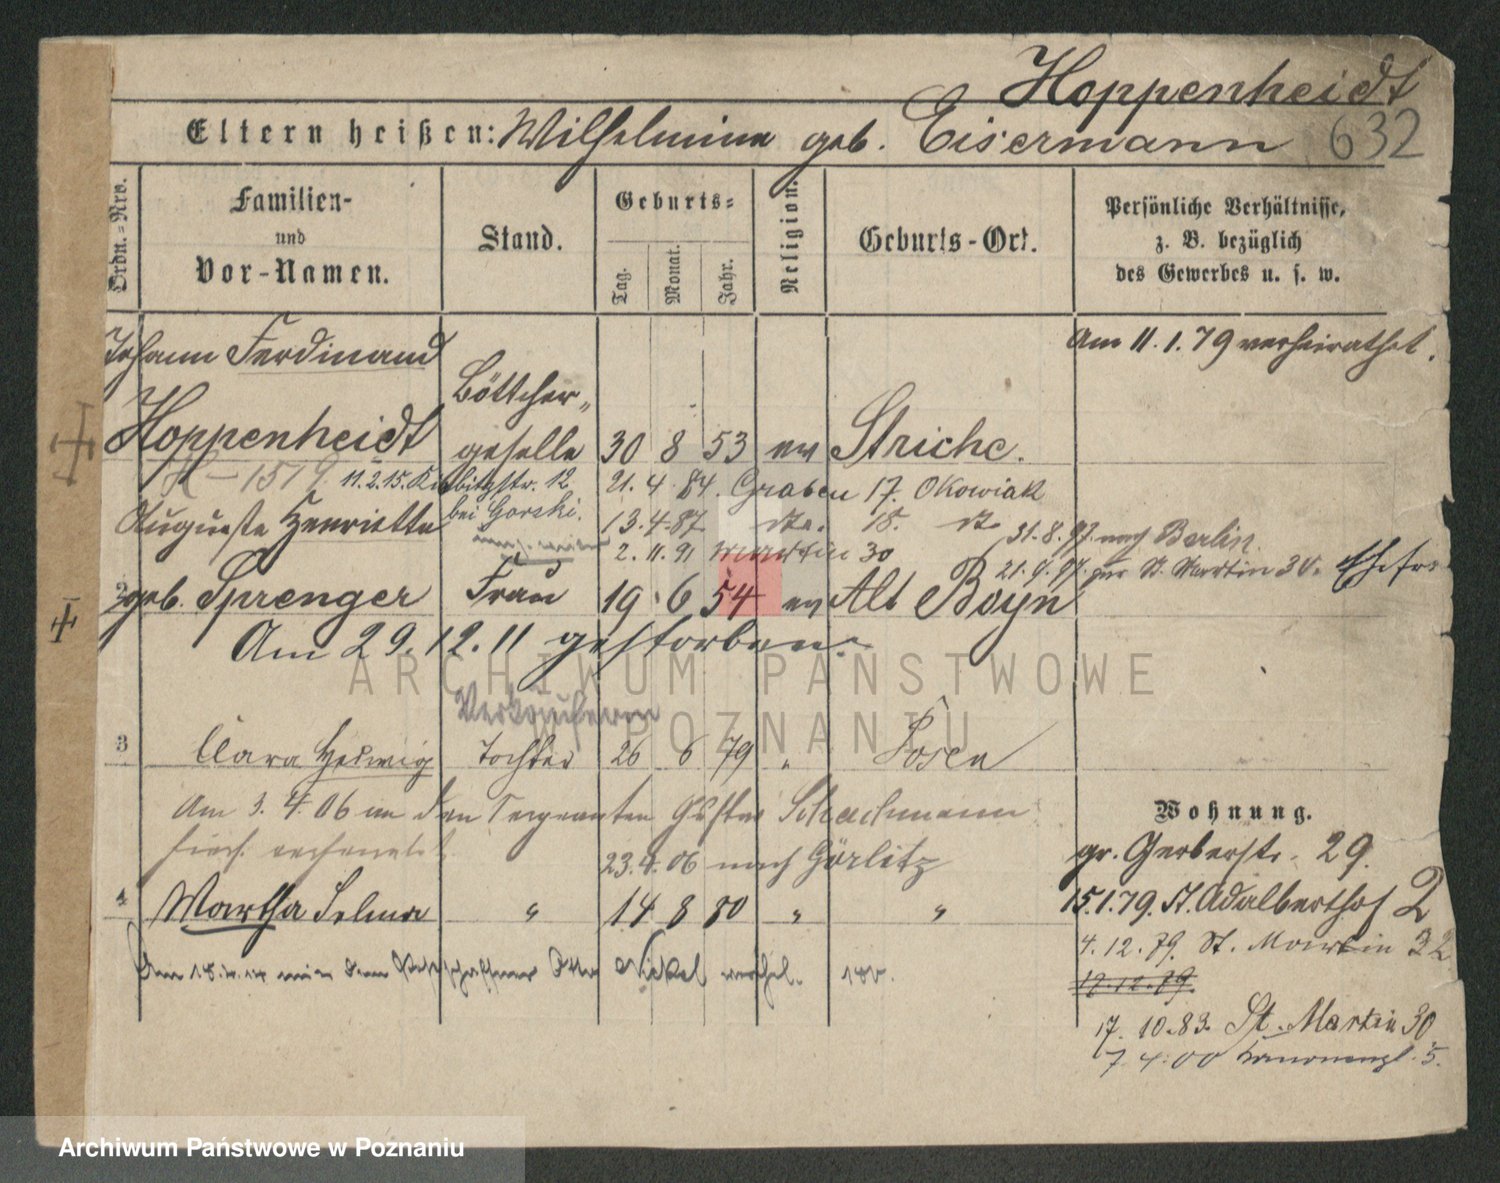 Hoppenheidt
Eltern heißen: Wilhelmine geb. Eisermann 632
Ordn.=Nro.
Familien-
und
Vor-Namen.
Stand.
Geburts=
Tag.
Monat.
Jahr.
Religion.
Geburts-Ort.
Persönliche Verhältnisse,
z. B. bezüglich
des Gewerbes u. s. w.
Am 11.1.79 verheirathet.
Johann Ferdinand
Böttcher„
Hoppenheidt geselle 30 8 53 ev Striche.
H-1519. 11.2.15. 12. 21.4.84. Graben 17. Okowiak
Auguste Henriette bei Gorski. 13.4.87 dto. 18. dto
31.8.97. nach Berlin.
2.11.91 Martin 30
21.9.97. St. Martin 30.
2 geb. Sprenger Frau 19 6 54 ev Alt Boyn
Am 29.12.11 gestorben.
ARCHIWUM PAŃSTWOWE
W POZNANIU
Verkäuferin
3 Clara Hedwig Tochter 26 6 79 „ Posen
Am 3.4.06 an den Sergeanten Gustav Schachmann
23.4.06 nach Görlitz
Wohnung.
gr. Gerberstr. 29.
4 Martha Selma „ 14 8 80 „ „
15.1.79. St. Adalberthof 2
4.12.79. St. Martin 32
Am 18.4.14 mit dem Postschaffner Otto Nickel verehel.
12.12.79.
17.10.83. St. Martin 30
7.4.00 5.
Archiwum Państwowe w Poznaniu